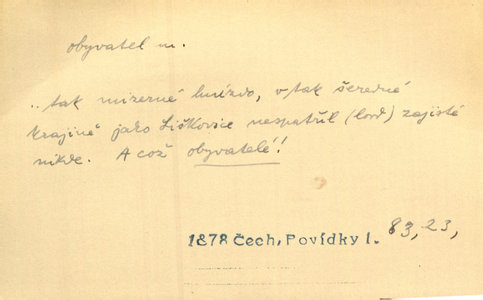 obyvatel m.
„tak mizerné hnízdo, v tak šeredné
krajině jako Liškovice nespatřil (lord) zajisté
nikde. A což obyvatelé!
1878 Čech, Povídky I. 83, 23,